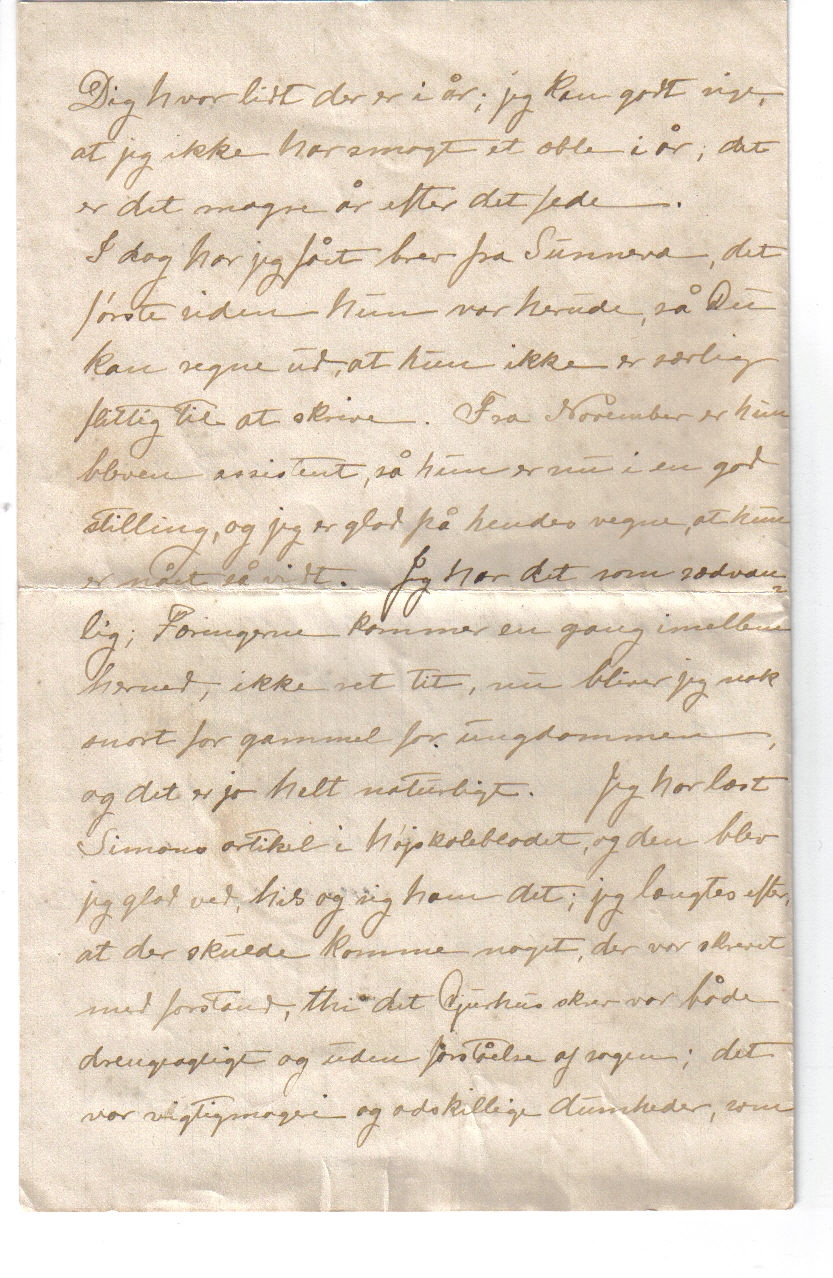 Dig hvor lidt der er i år; jeg kan godt sige,
at jeg ikke har smagt et æble i år; det
er det magre år efter det fede.
I dag har jeg fået brev fra Sunneva, det
første siden hun var herude, så Du
kan regne ud, at hun ikke er særlig
flittig til at skrive. Fra November er hun
bleven assistent, så hun er nu i en god
stilling, og jeg er glad på hendes vegne, at hun
er nået så vidt. Jeg har det som sædvan-
lig; Færingerne kommer en gang imellem
herned, ikke ret tit, nu bliver jeg nok
snart for gammel for ungdommen,
og det er jo helt naturligt. Jeg har læst
Simons artikel i højskolebladet, og den blev
jeg glad ved, hils og sig ham det; jeg længtes efter,
at der skulde komme noget, der var skrevet
med forstand, thi det skrev var både
drengeagtigt og uden forståelse af sagen; det
var vigtigmageri og adskillige dumheder, som